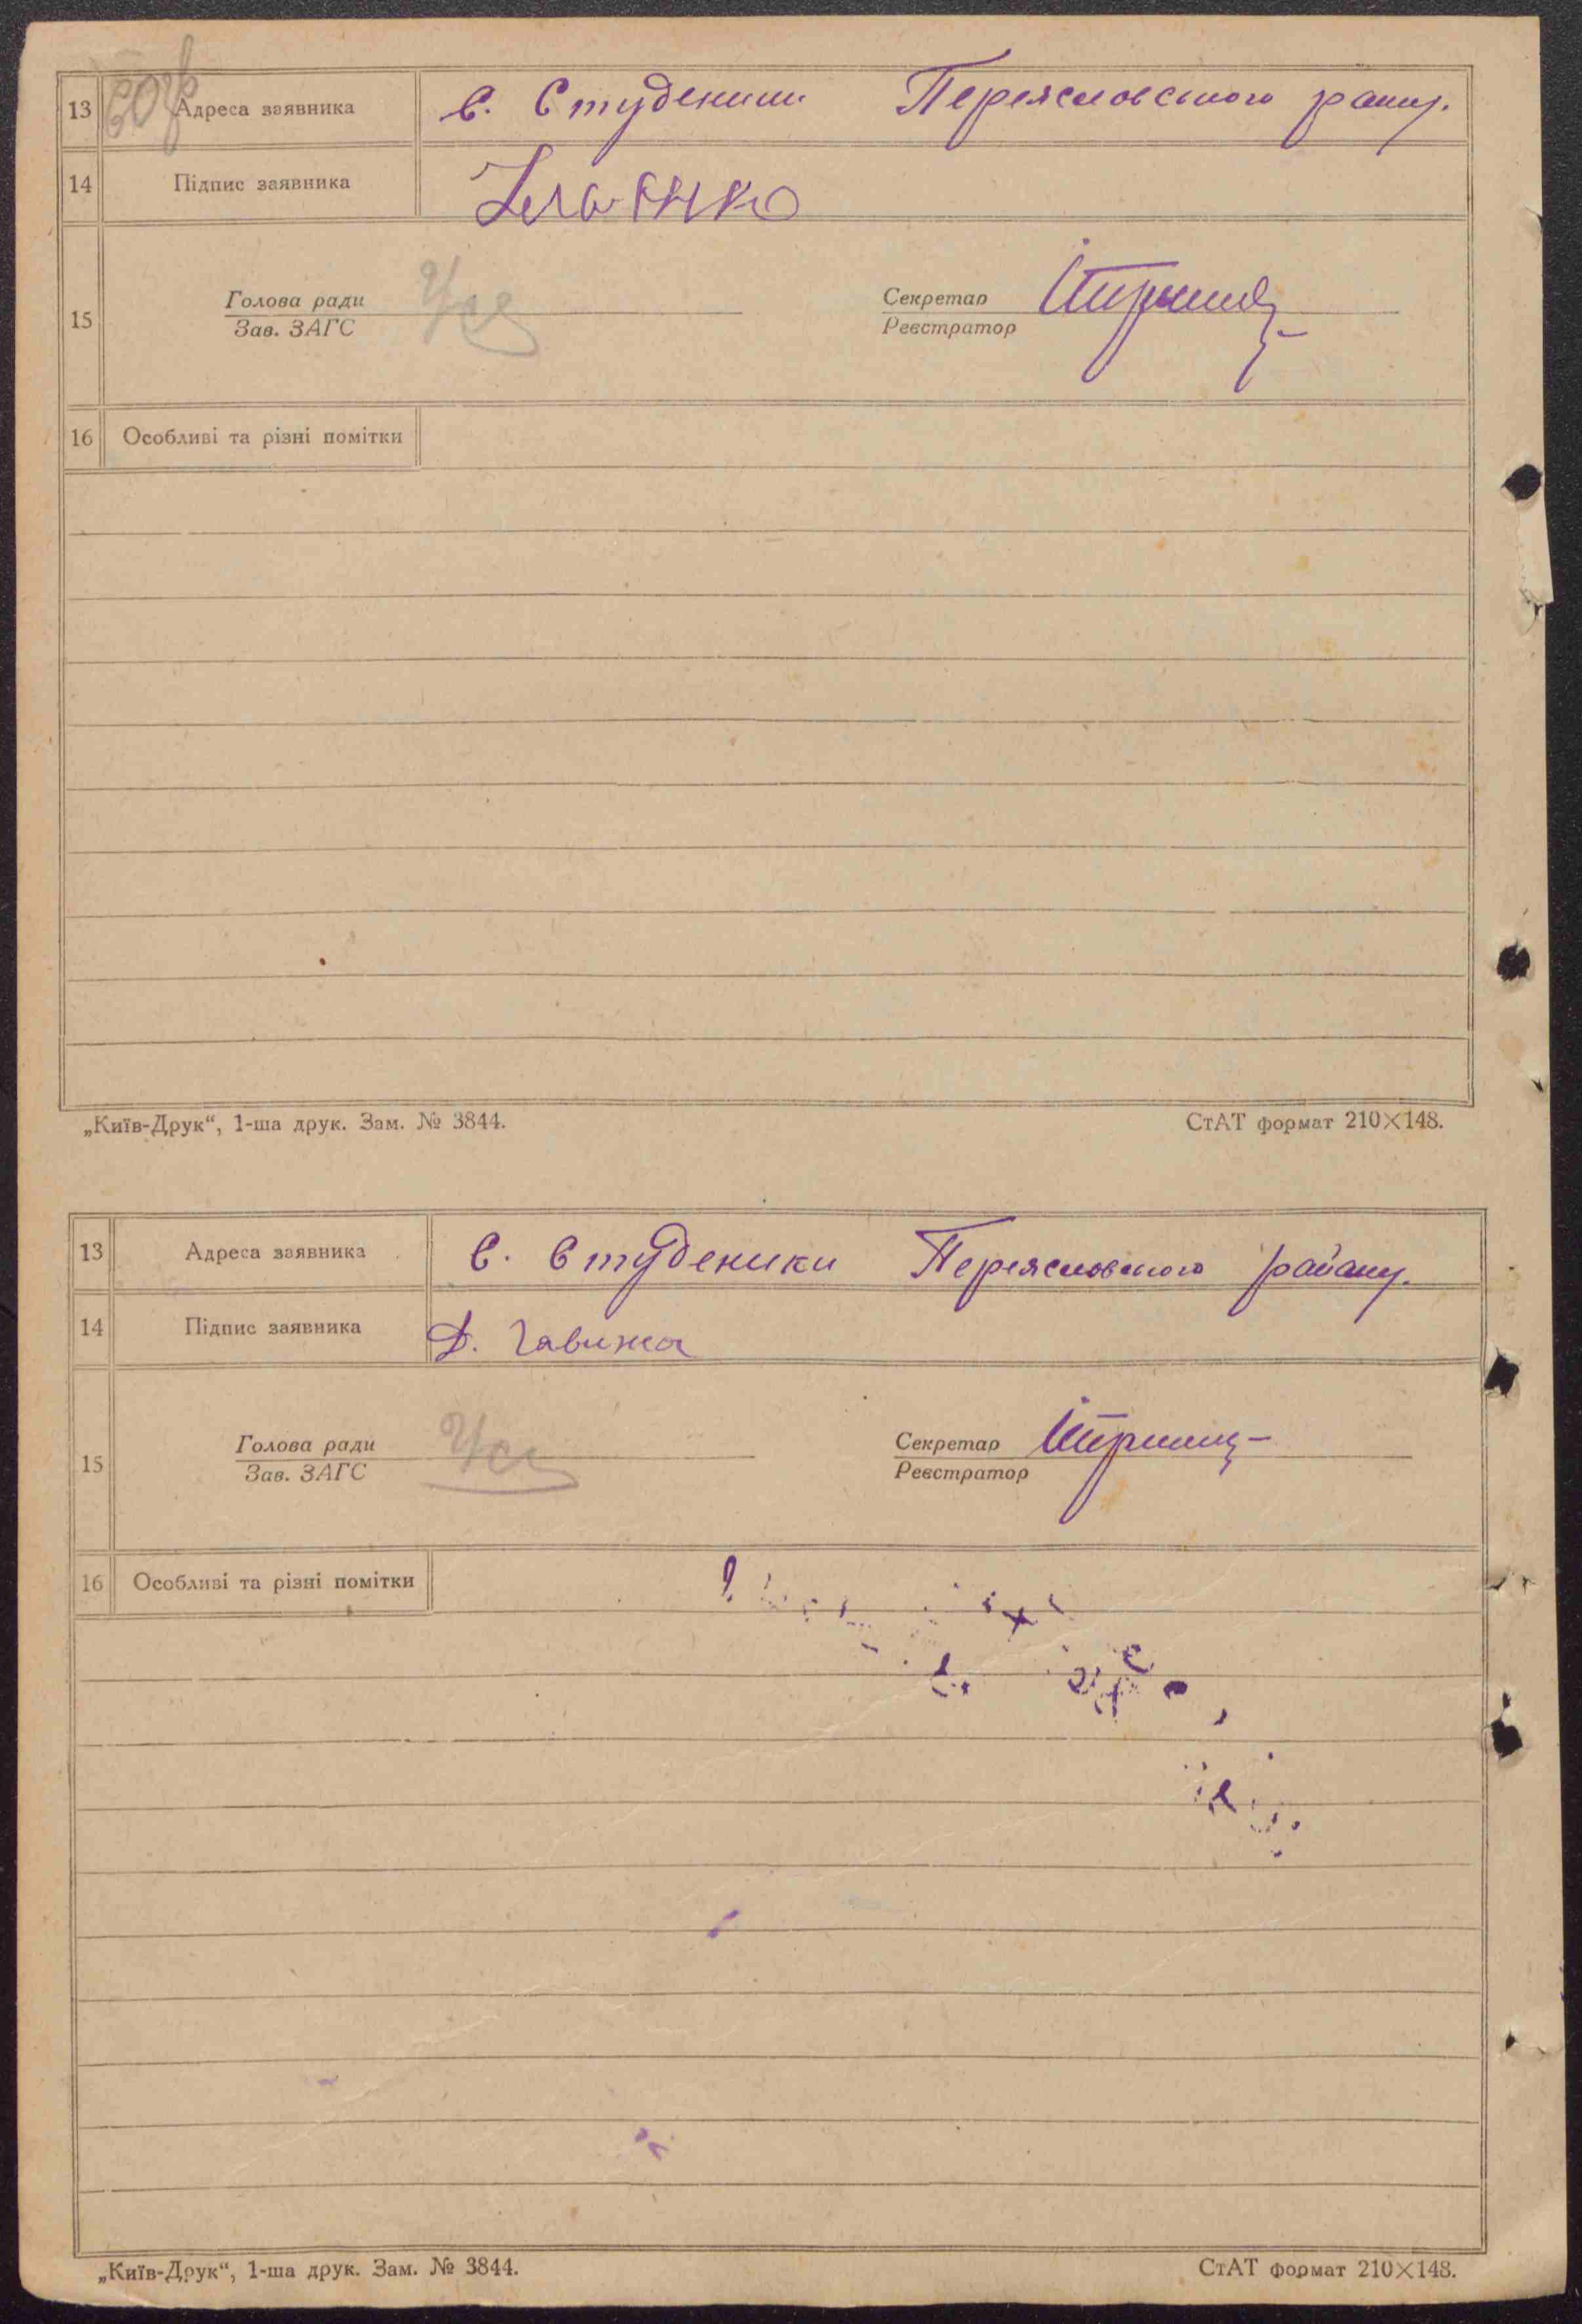 13 Адреса заявника с. Студеники Переясловського району.
14 Підпис заявника
15 Голова ради Секретар
Зав. ЗАГС Реєстратор
16 Особливі та різні помітки
„Київ-Друк“, 1-ша друк. Зам. № 3844. СтАТ формат 210×148.
13 Адреса заявника с. Студеники Переясловського району.
14 Підпис заявника Д. Гавиха
15 Голова ради Секретар
Зав. ЗАГС Реєстратор
16 Особливі та різні помітки
„Київ-Друк“, 1-ша друк. Зам. № 3844. СтАТ формат 210×148.